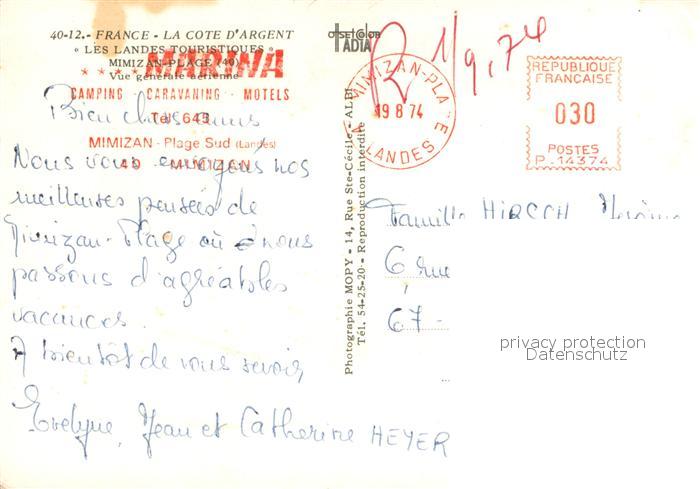 40-12.- FRANCE - LA COTE D'ARGENT
« LES LANDES TOURISTIQUES »
MIMIZAN-PLAGE (40)
Vue générale aérienne
**** MARINA
CAMPING - CARAVANING - MOTELS
Tel 645
MIMIZAN - Plage Sud (Landes)
40 - MIMIZAN
Bien chers amis
Nous vous envoyons nos
meilleures pensées de
Mimizan-Plage où nous
passons d'agréables
vacances.
A bientôt de vous revoir,
Evelyne, Jean et Catherine HEYER
Photographie MOPY - 14, Rue Ste-Cécile - ALBI
Tél. 54-25-20 - Reproduction interdite
OFFSET COLOR
IADTA
R 1/9,74
MIMIZAN-PLAGE
19 8 74
LANDES
REPUBLIQUE
FRANÇAISE
030
POSTES
P.14374
Famille HIRSCH Jérôme
6 rue
67-
privacy protection
Datenschutz